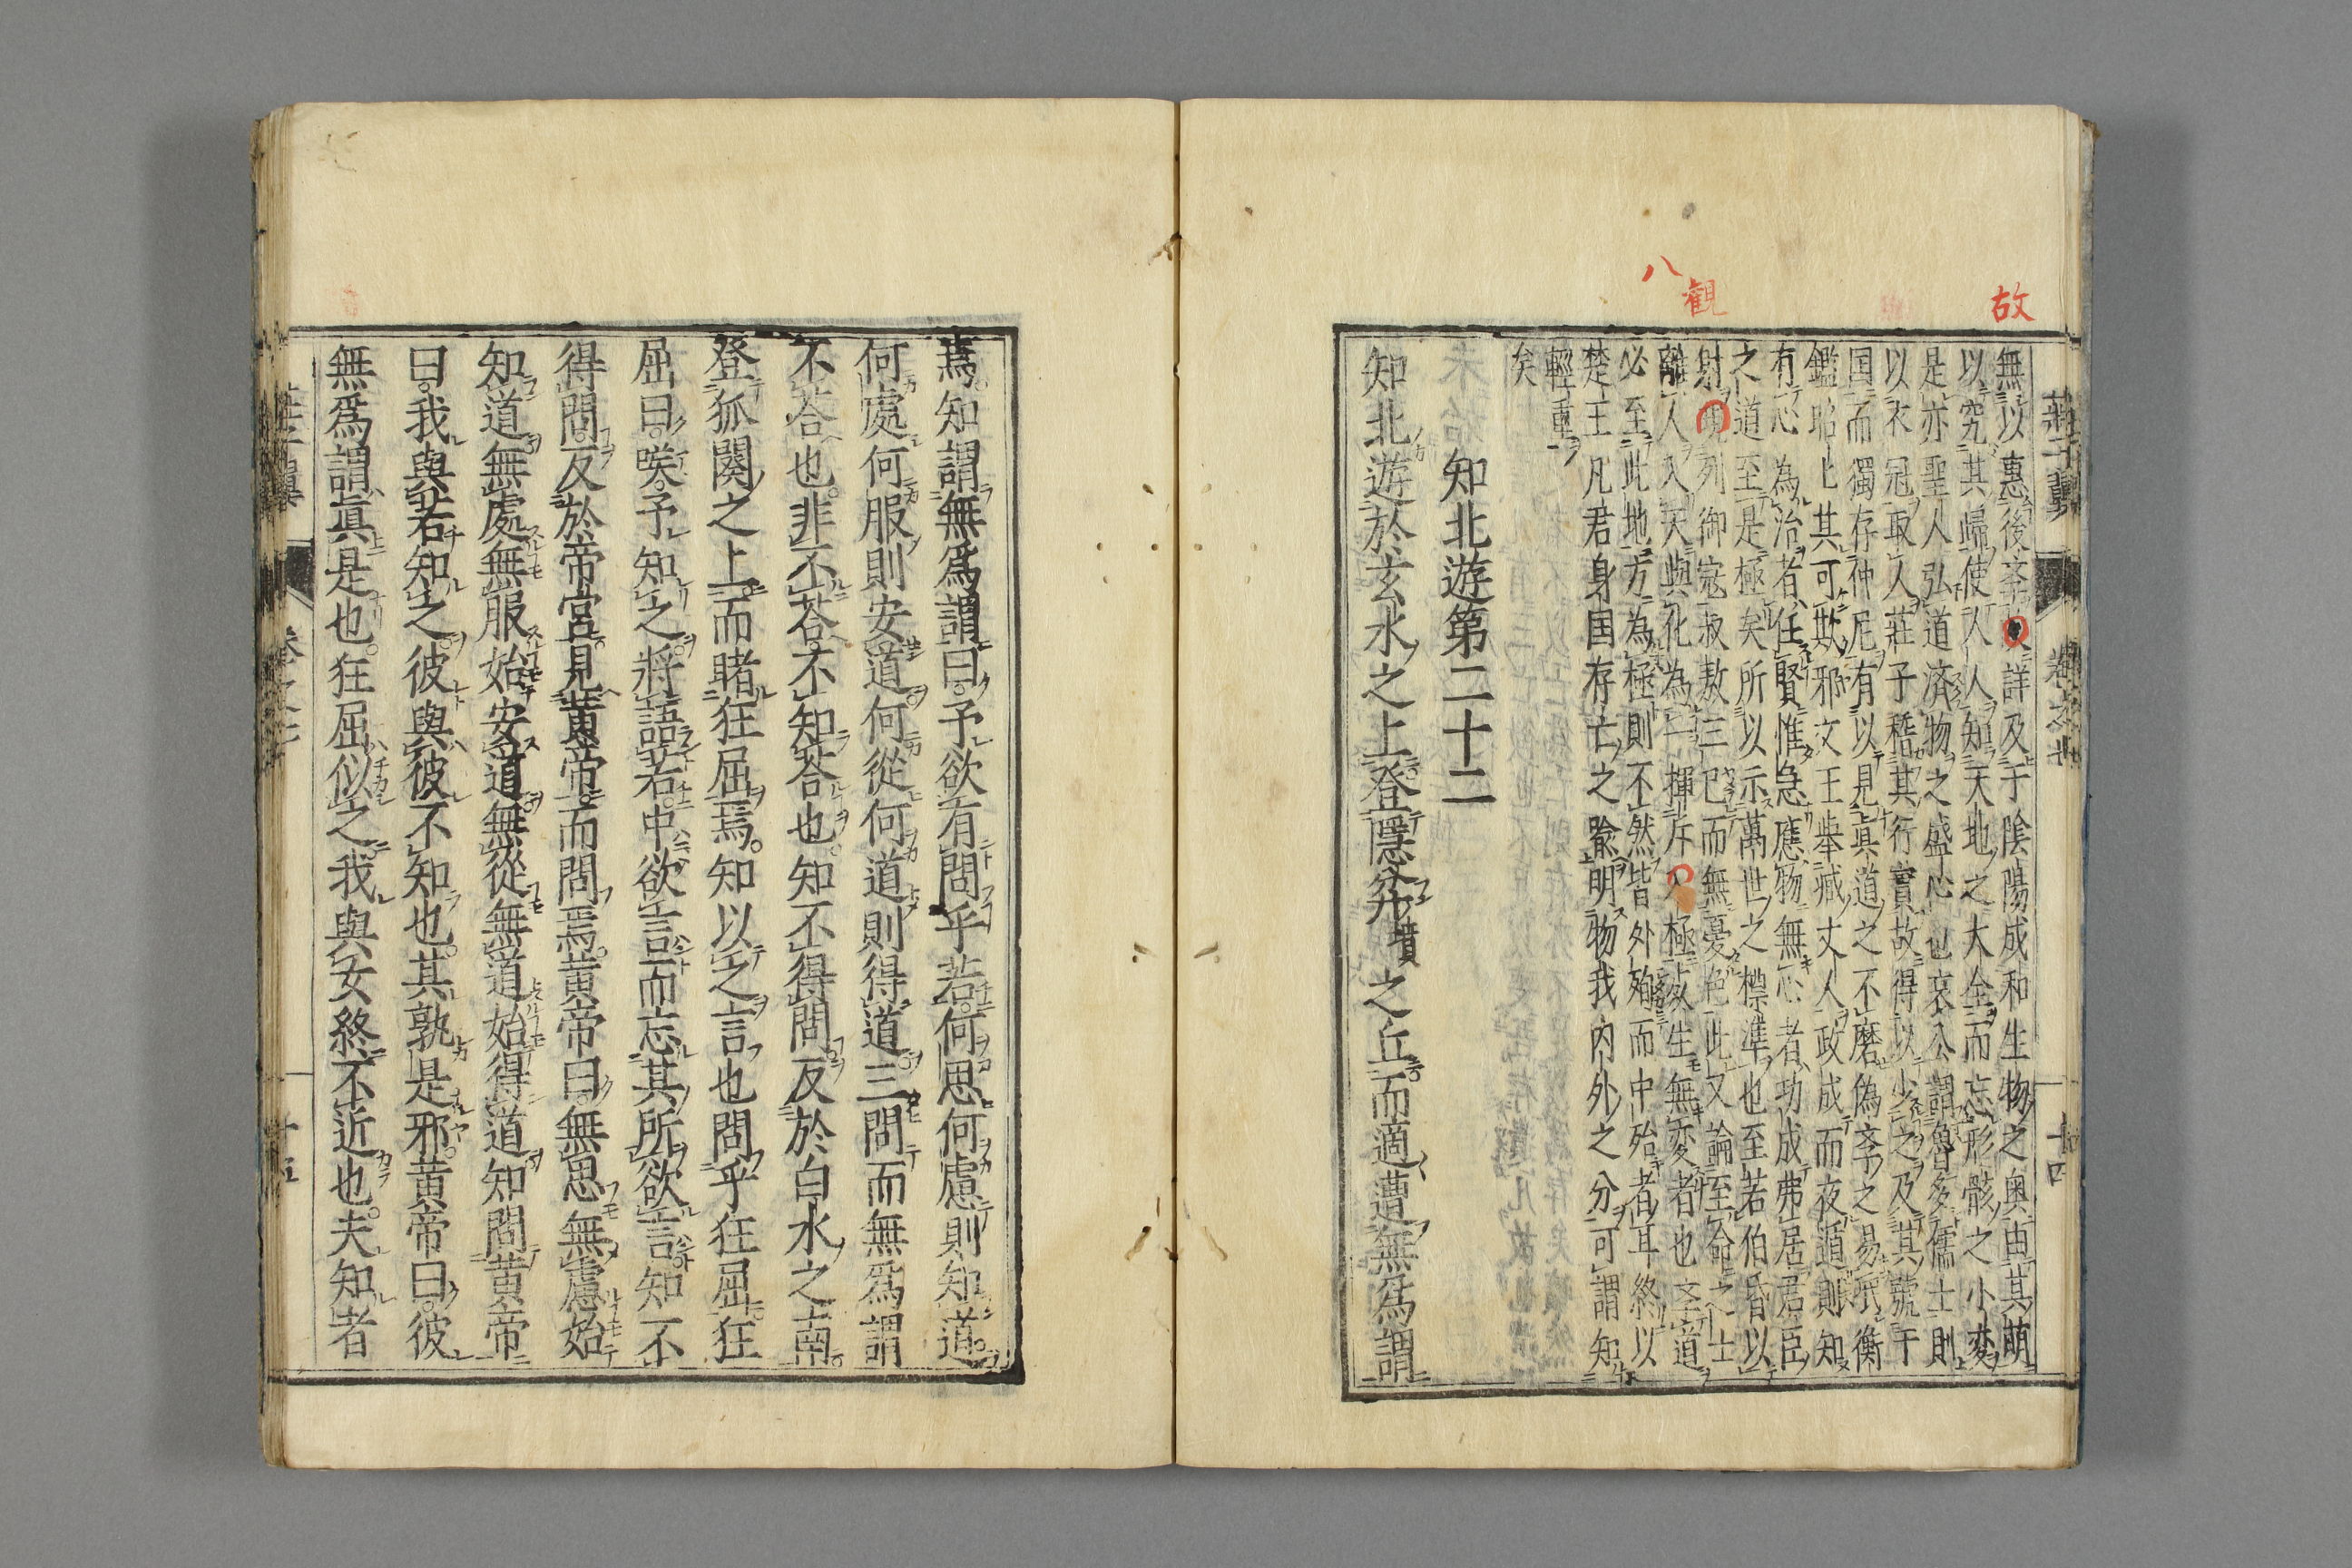 故
觀
八
莊子翼 卷之七 十四
無以惠後斈 詳及于陰陽成和生物之奥由其萌
以究其歸使人人知天地之大全而忘形骸之小変
是亦聖人弘道済物之盛心也哀公謂魯多儒士則
以衣冠取人莊子稽其行實故得以少之及其號于
国而獨存仲尼有以見眞道之不磨偽斈之易泯衡
鑑昭上其可欺邪文王舉臧丈人政成而夜遁則知
有心為治者任賢惟急應物無心者功成弗居君臣
之道至是極矣所以示萬世之標準也至若伯昏以
射 列御寇叔敖三已而無憂色此又論至命之士
離人入天與化為一揮斥 極 生無変者也斈道
必至此地方為極則不然皆外殉而中殆者耳終以
楚王凡君身国存亡之踰明物我内外之分可謂知
輕重
矣
知北遊第二十二
知北遊於玄水之上登隱弅墳之丘而適遭無爲謂
焉知謂無爲謂曰予欲有問乎若何思何慮則知道
何處何服則安道何從何道則得道三問而無爲謂
不荅也非不荅不知荅也知不得問反於白水之南
登狐闋之上而睹狂屈焉知以之言也問乎狂屈狂
屈曰唉予知之將語若中欲言而忘其所欲言知不
得問反於帝宮見黃帝而問焉黃帝曰無思無慮始
知道無處無服始安道無從無道始得道知問黃帝
曰我與若知之彼與彼不知也其孰是邪黃帝曰彼
無爲謂眞是也狂屈似之我與女終不近也夫知者
莊子翼 卷之七 十五